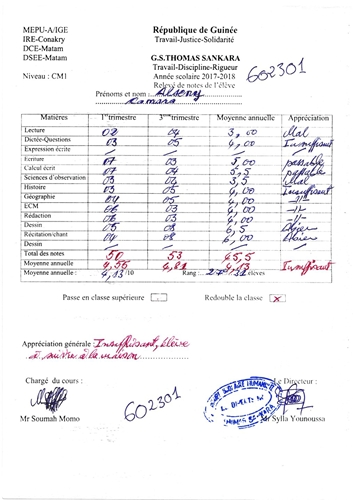 MEPU-A/IGE
IRE-Conakry
DCE-Matam
DSEE-Matam
Niveau : CM1
République de Guinée
Travail-Justice-Solidarité
G.S.THOMAS SANKARA
Travail-Discipline-Rigueur
Année scolaire 2017-2018
Relevé de notes de l'élève
602301
Prénoms et nom : Alseny
Camara
Matières 1er trimestre 3ème trimestre Moyenne annuelle Appréciation
Lecture 02 04 3,00 Mal
Dictée-Questions 03 05 4,00 Insuffisant
Expression écrite
Ecriture 07 03 5,00 passable
Calcul écrit 07 04 5,5 passable
Sciences d'observation 03 3,5 Mal
Histoire 03 05 4,00 Insuffisant
Géographie 04 05 4,00 -//-
ECM 4,00 -//-
Rédaction 03 4,00 -//-
Dessin 05 08 6,5
Récitation/chant 04 08 6,00
Dessin
Total des notes 50 53 45,5
Moyenne annuelle 4,56 4,81 4,13 Insuffisant
Moyenne annuelle : 4,13/10 Rang : 27 élèves
Passe en classe supérieure Redouble la classe X
Appréciation générale : Insuffisant, élève
à suivre à la maison
Chargé du cours : Le Directeur :
602301
Mr Soumah Momo Mr Sylla Younoussa